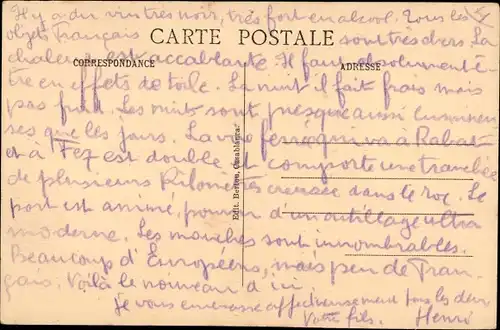 Il y a du vin très noir, très fort en alcool. Tous les
objets français sont très chers. La
CARTE POSTALE
chaleur est accablante. Il faut absolument ê-
CORRESPONDANCE
ADRESSE
tre en effets de toile. La nuit il fait frais mais
pas froid. Les nuits sont presque aussi lumineu-
ses que les jours. La voie ferrée qui va à Rabat
et à Fez est double et comporte une tranchée
de plusieurs kilomètres creusée dans le roc. Le
port est animé, pourvu d'un outillage ultra
moderne. Les mouches sont innombrables.
Beaucoup d'Européens, mais peu de Fran-
çais. Voilà le nouveau d'ici
Je vous embrasse affectueusement tous les deux
Votre fils. Henri
Edit. Casablanca